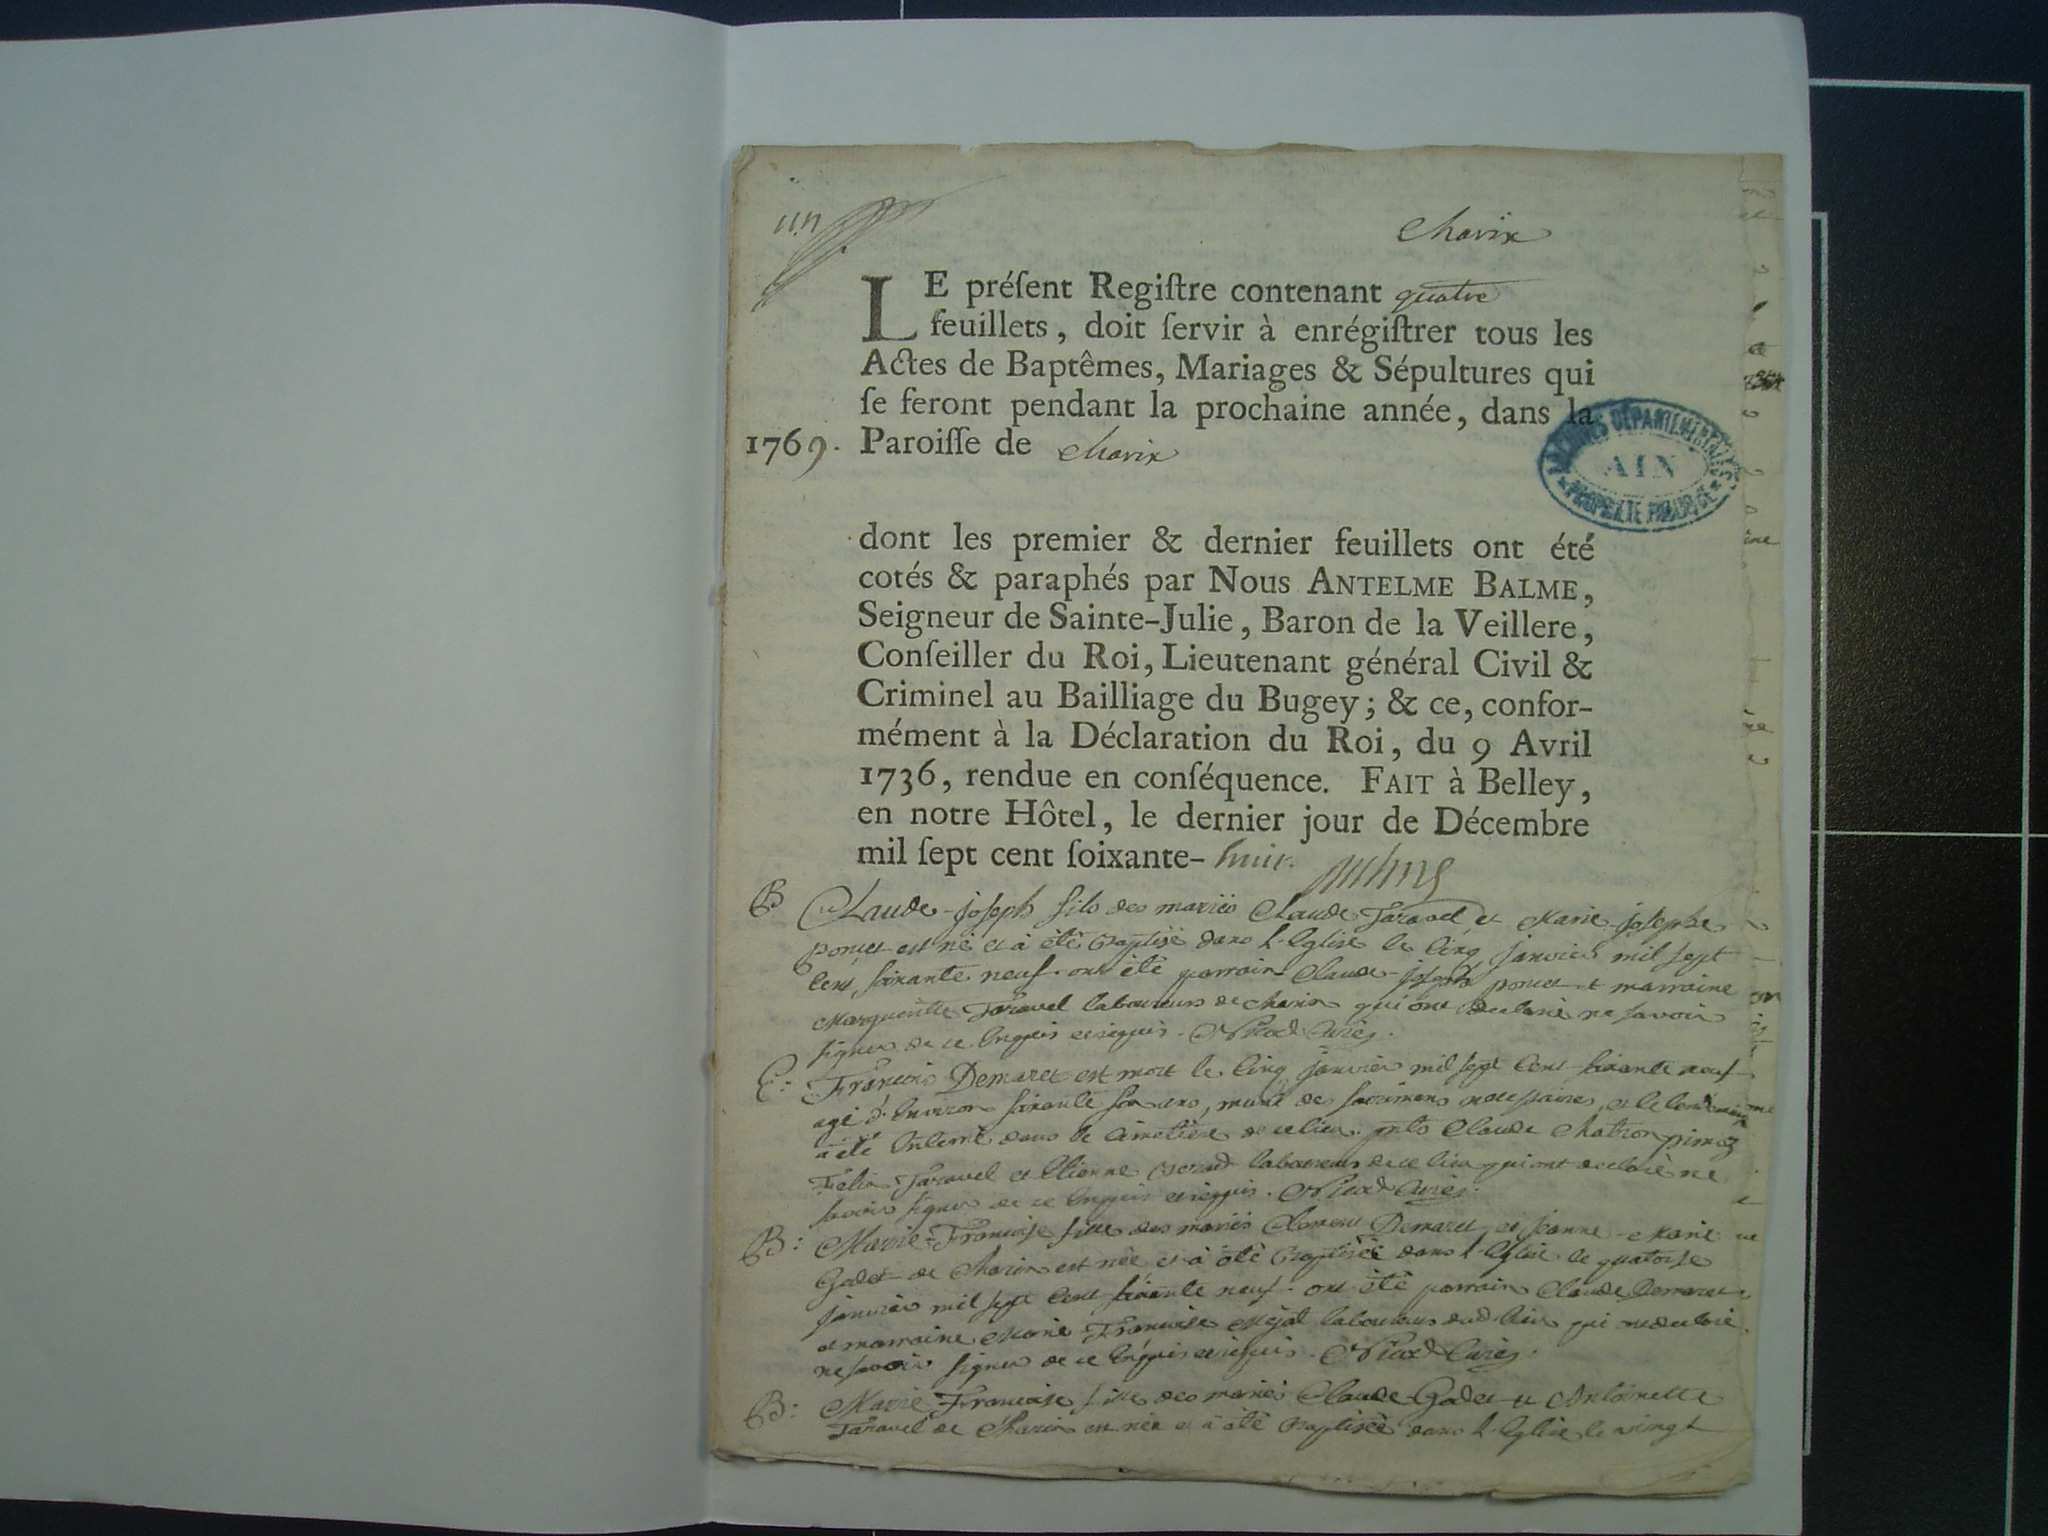 un
Charix
LE préſent Regiſtre contenant quatre
feuillets, doit ſervir à enrégiſtrer tous les
Actes de Baptêmes, Mariages & Sépultures qui
ſe feront pendant la prochaine année, dans la
1769. Paroiſſe de Charix
ARCHIVES DÉPARTEMENTALES
AIN
PROPRIÉTÉ PUBLIQUE
dont les premier & dernier feuillets ont été
cotés & paraphés par Nous ANTELME BALME,
Seigneur de Sainte-Julie, Baron de la Veillere,
Conſeiller du Roi, Lieutenant général Civil &
Criminel au Bailliage du Bugey; & ce, confor-
mément à la Déclaration du Roi, du 9 Avril
1736, rendue en conſéquence. FAIT à Belley,
en notre Hôtel, le dernier jour de Décembre
mil ſept cent ſoixante-huit.
B Claude-joseph fils des mariés Claude Taravel et Marie-josephe
poncet est né et à été Baptisé dans l'Eglise le cinq janvier mil sept
cent soixante neuf. ont été parrain Claude-joseph poncet et marraine
Marguerite Taravel laboureurs de charix qui ont declaré ne savoir
signer de ce enquis et requis. Curé.
E: François Demaret est mort le cinq janvier mil sept cent soixante neuf
agé d'environ soixante ans, muni des sacrimens necessaires, et le lendemain
a été enterré dans le cimetière de ce lieu. pnts Claude Chatron
Felix Taravel et Etienne laboureurs de ce lieu qui ont declaré ne
savoir signer de ce enquis et requis. Curé.
B: Marie-Françoise fille des mariés Clement Demaret et jeanne-Marie
Godet de Charix est née et à été Baptisée dans l'Eglise le quatorse
janvier mil sept cent soixante neuf. ont été parrain Claude Demaret
et marraine Marie-Françoise laboureurs dud lieu qui ont declaré
ne savoir signer de ce enquis et requis. Curé.
B: Marie Françoise fille des mariés Claude Godet et Antoinette
Taravel de Charix est née et à été Baptisée dans l'Eglise le vingt